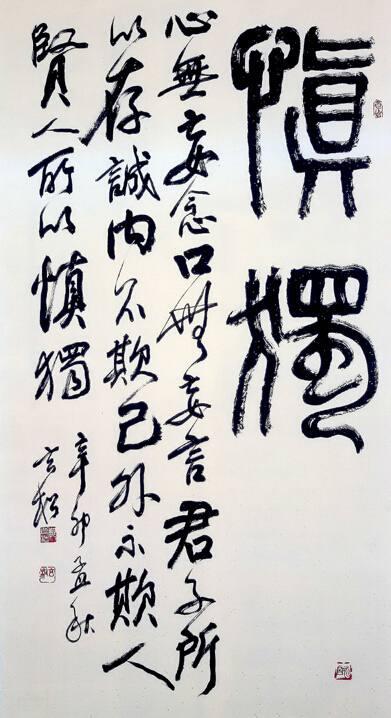 慎獨
心無妄念口無妄言君子所
以存誠內不欺己外不欺人
賢人所以慎獨
辛卯孟秋